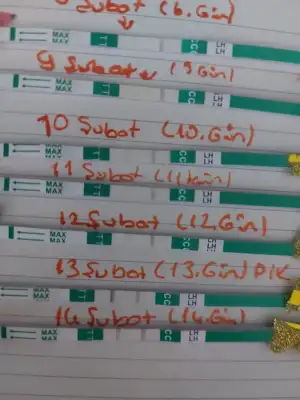 Şubat (8.Gün)
MAX
MAX
LH
LH
9 Şubat (9 Gün)
MAX
MAX
LH
LH
10 Şubat (10.Gün)
MAX
MAX
TT
CC
LH
LH
11 Şubat (11.Gün)
MAX
MAX
TT
CC
LH
LH
12 Şubat (12.Gün)
MAX
MAX
TT
CC
LH
LH
13 Şubat (13.Gün) PİK
MAX
MAX
TT
CC
LH
LH
14 Şubat (14.Gün)
MAX
MAX
TT
CC
LH
LH